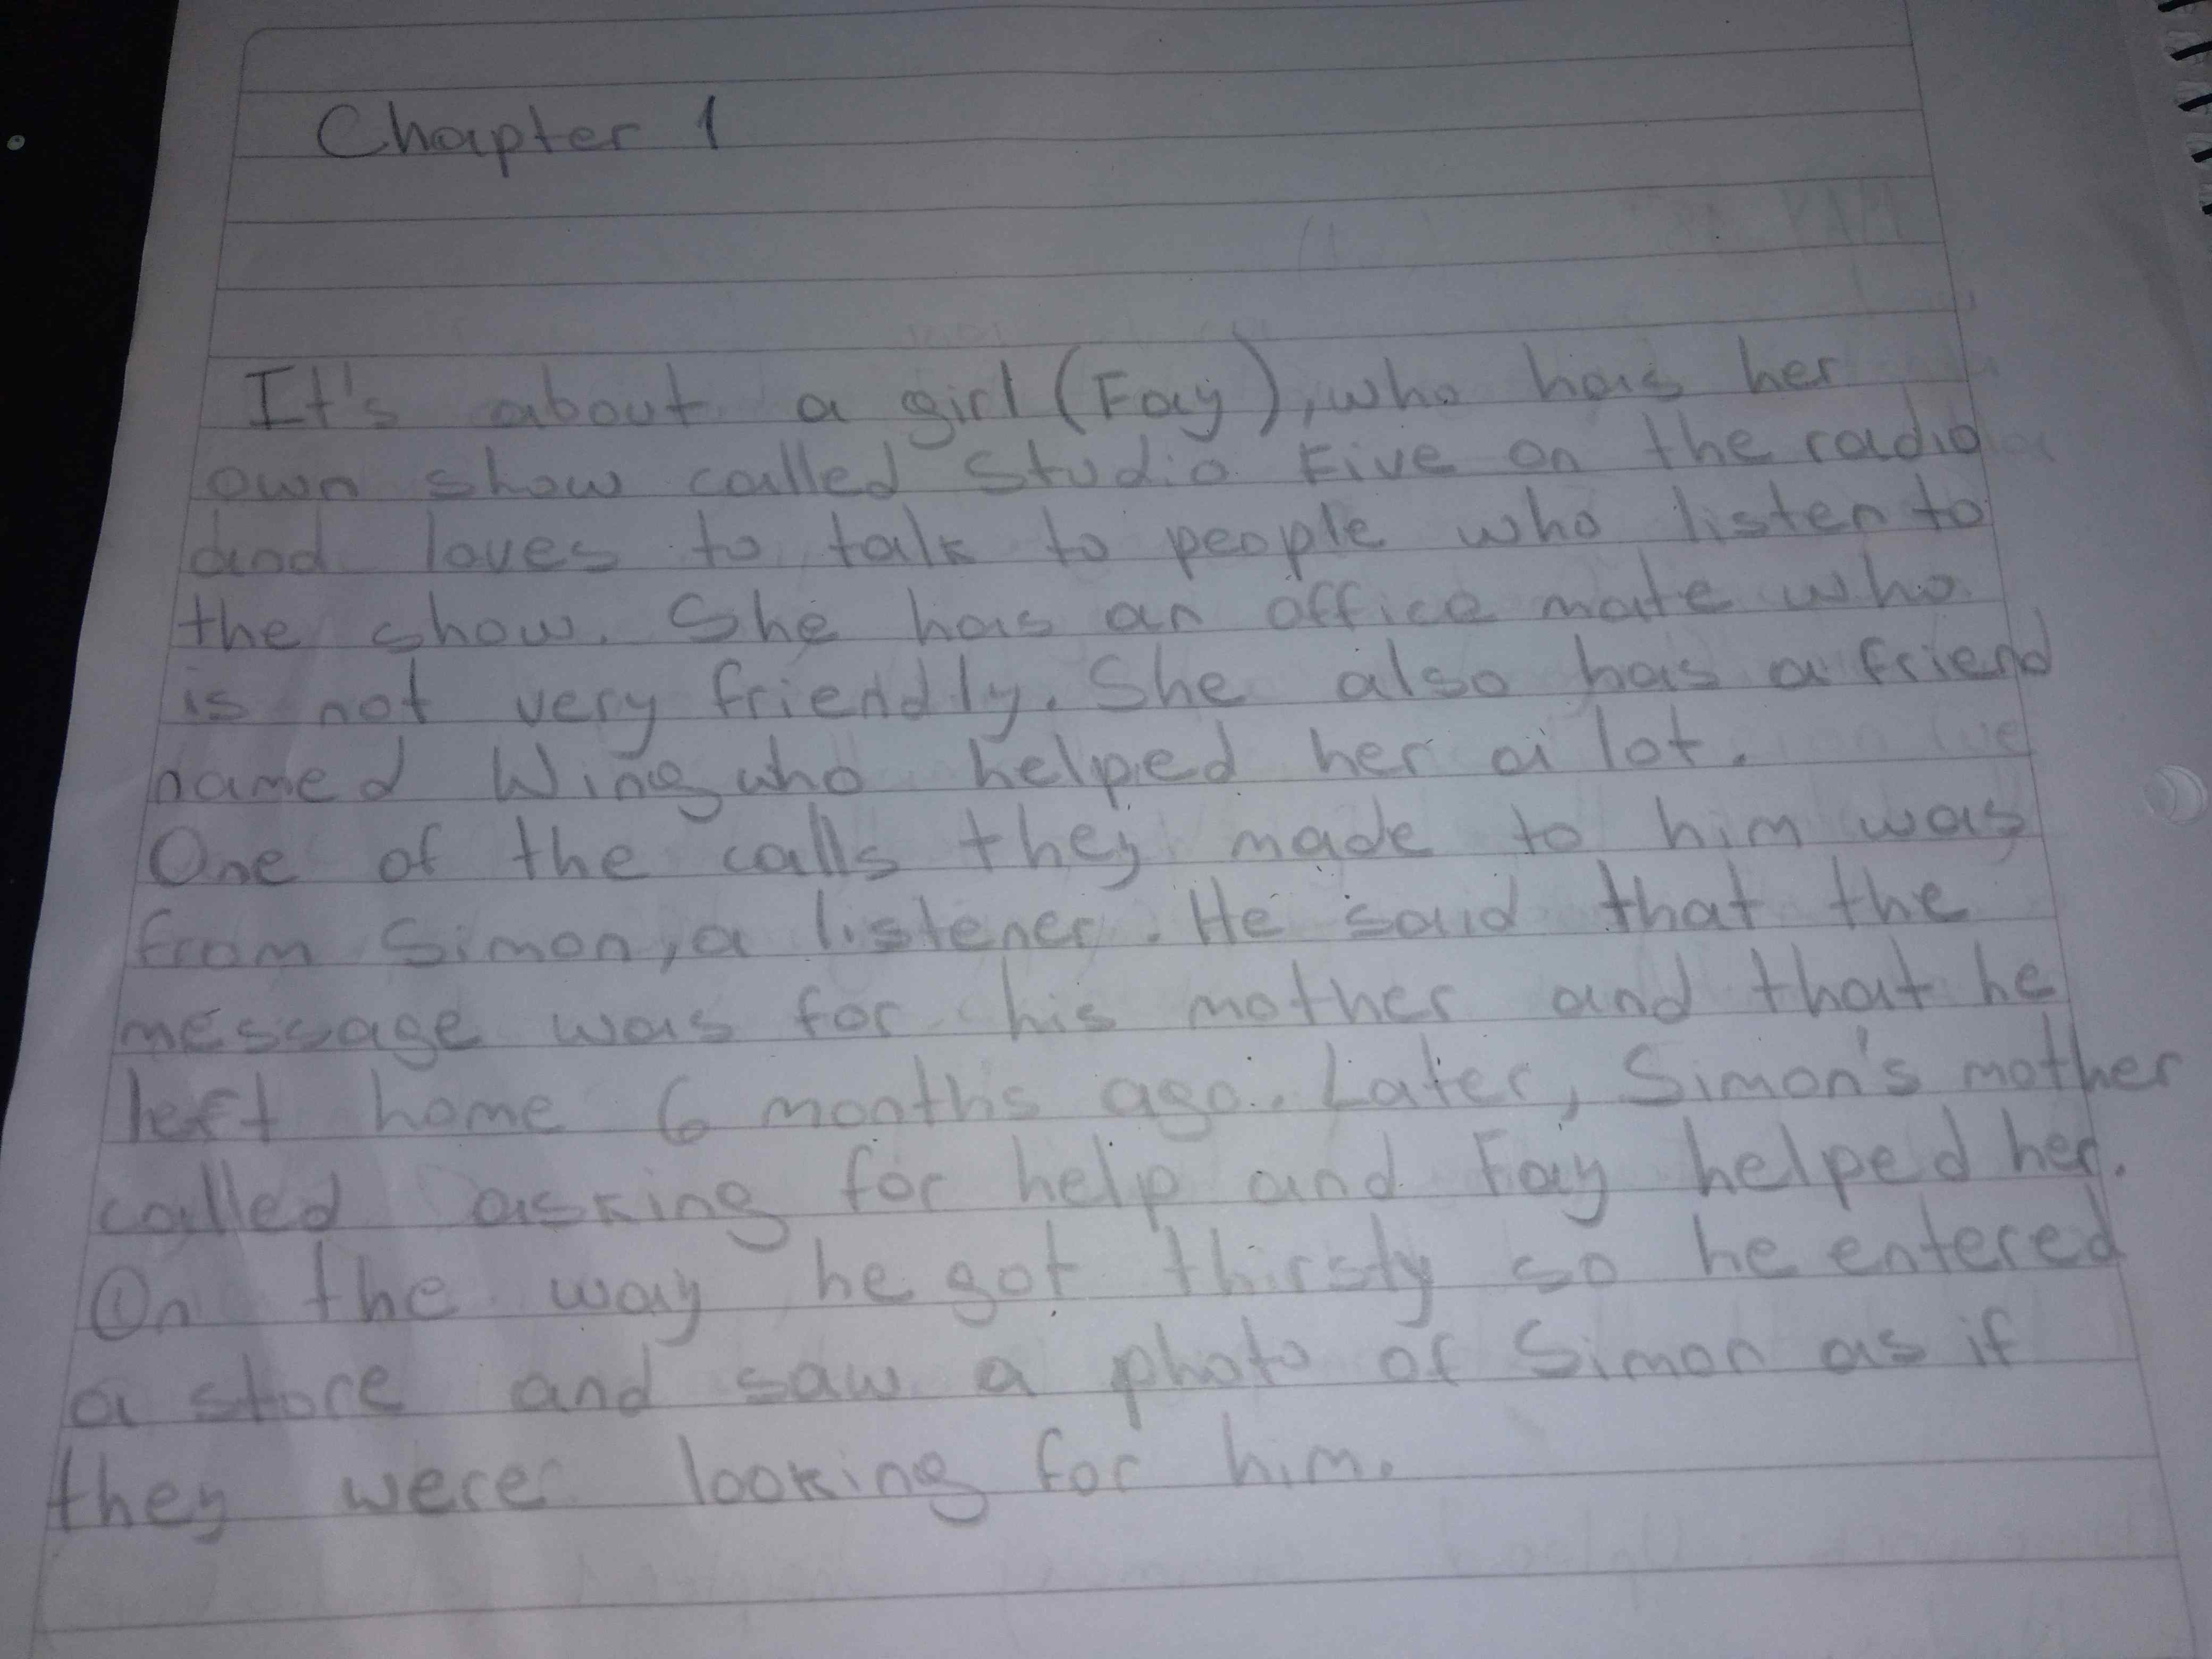 Chapter 1
It's about a girl (Fay), who has her
own show called Studio Five on the radio
and loves to talk to people who listen to
the show. She has an office mate who
is not very friendly. She also has a friend
named Wing who helped her a lot.
One of the calls they made to him was
from Simon, a listener. He said that the
message was for his mother and that he
left home 6 months ago. Later, Simon's mother
called asking for help and Fay helped her.
On the way he got thirsty so he entered
a store and saw a photo of Simon as if
they were looking for him.